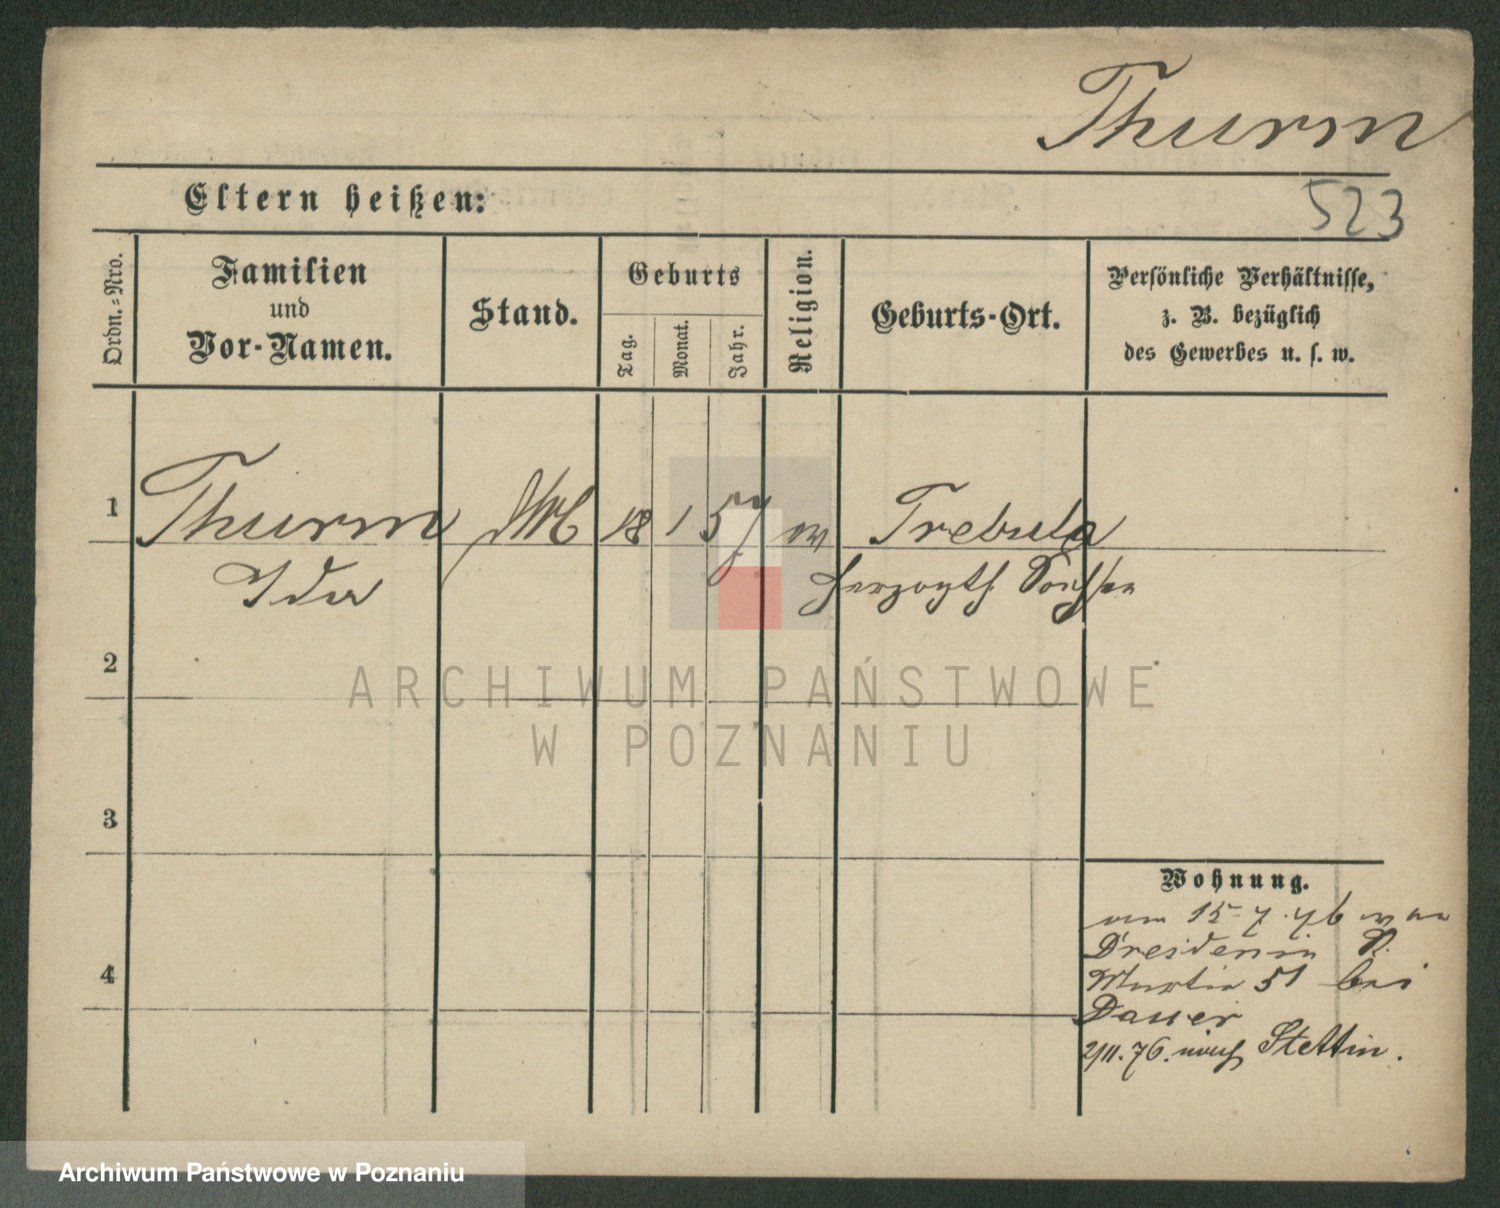 Thurm
Eltern heißen:
523
Ordn.=Nro.
Familien
und
Vor-Namen.
Stand.
Geburts
Tag.
Monat.
Jahr.
Religion.
Geburts-Ort.
Persönliche Verhältnisse,
z. B. bezüglich
des Gewerbes u. s. w.
1 Thurm 18 1 57 Trebula
Ida Herzogth. Sachsen
2
ARCHIWUM PAŃSTWOWE
W POZNANIU
3
Wohnung.
15-7.76 von
Dresden in St.
4
Martin 51 bei
Dauer
2/11.76. nach Stettin.
Archiwum Państwowe w Poznaniu